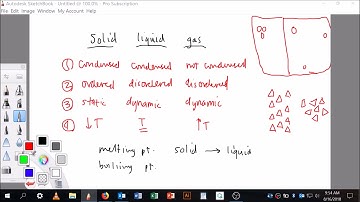 Autodesk SketchBook - Untitled @ 100.0% - Pro Subscription
File Edit Image Window My Account Help
Solid liquid gas
① Condensed Condensed not condensed
② ordered disordered disordered
③ static dynamic dynamic
④ ↓T T ↑T
melting pt. solid → liquid
boiling pt.
9:54 AM
6/16/2018